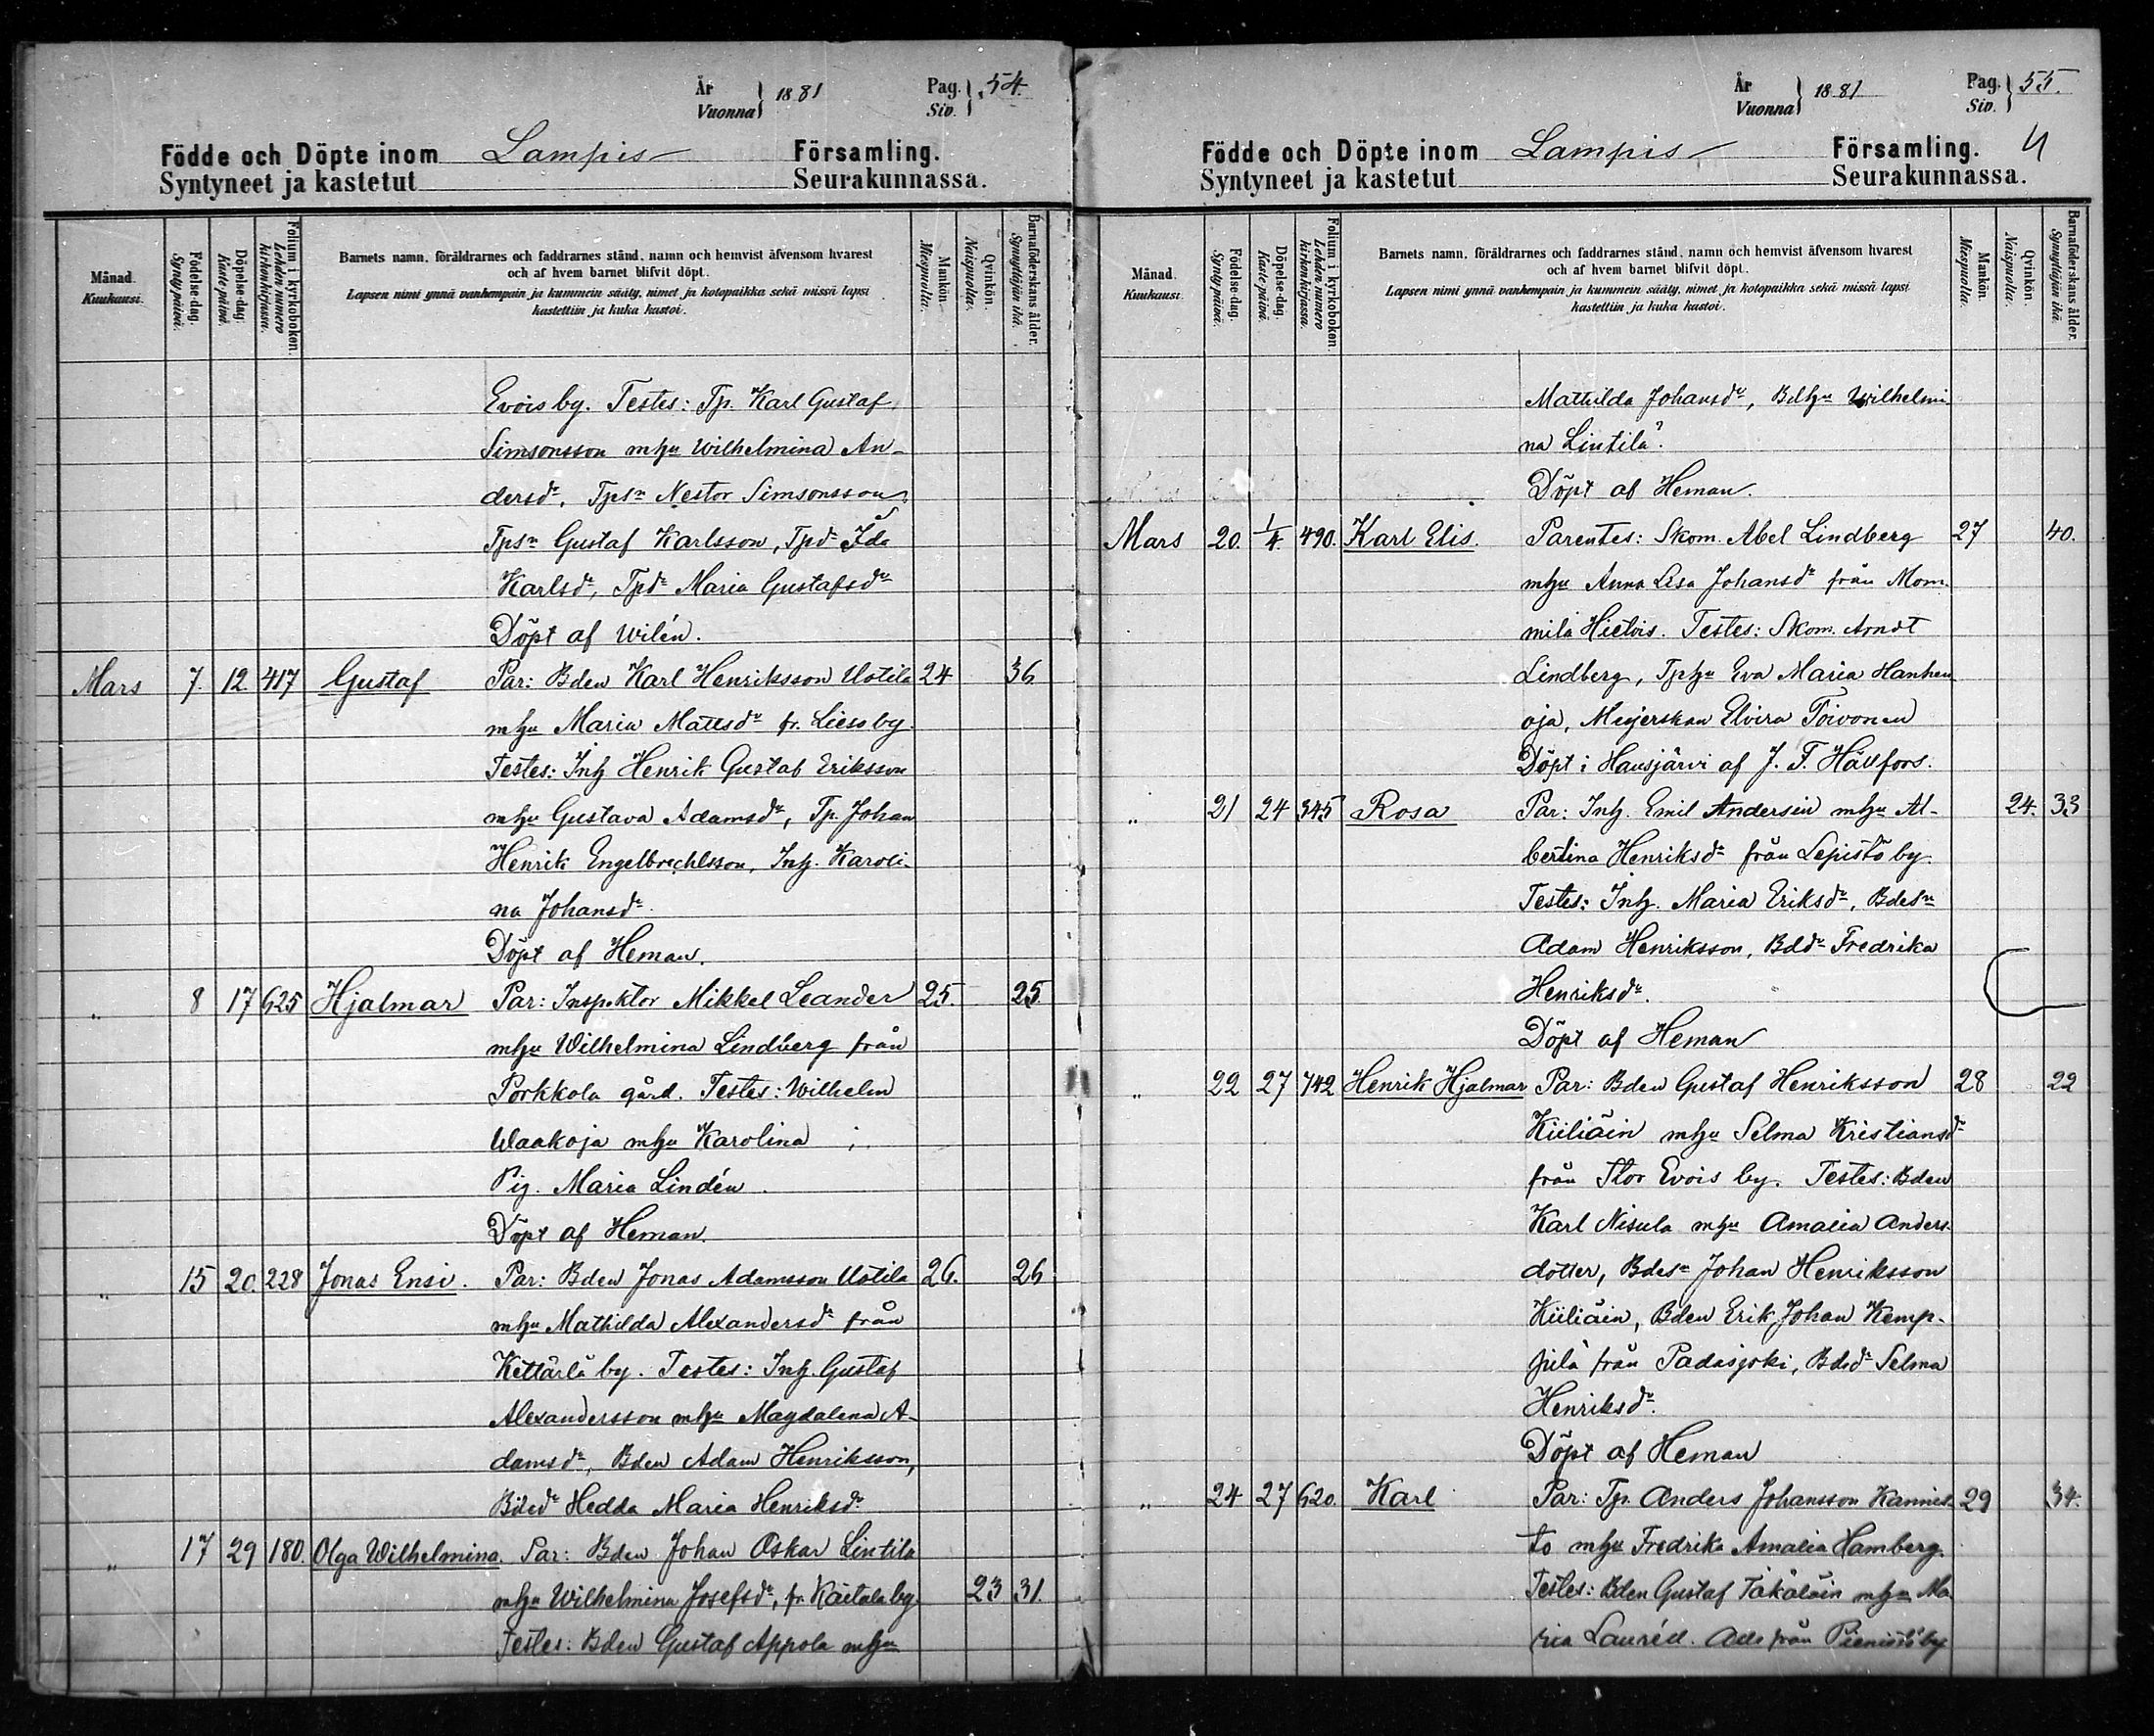 År
Vuonna } 1881
Pag. } 54.
Siv.
Födde och Döpte inom Lampis Församling.
Syntyneet ja kastetut Seurakunnassa.
Månad. Kuukausi.
Födelse-dag. Synty-päivä.
Döpelse-dag. Kaste-päivä.
Folium i kyrkoboken. Lehden numero kirkonkirjassa.
Barnets namn, föräldrarnes och faddrarnes stånd, namn och hemvist äfvensom hvarest
och af hvem barnet blifvit döpt.
Lapsen nimi ynnä vanhempain ja kummein sääty, nimet ja kotopaikka sekä missä lapsi
kastettiin ja kuka kastoi.
Mankön. Miespuolta.
Qvinkön. Naispuolta.
Barnaföderskans ålder. Synnyttäjän ikä.
Evois by. Testes: Tp. Karl Gustaf
Simsonsson mhu Wilhelmina An-
dersdr, Tpsn Nestor Simsonsson
Tpsn Gustaf Karlsson, Tpdr Ida
Karlsdr, Tpdr Maria Gustafsdr
Döpt af Wilén.
Mars 7. 12. 417 Gustaf Par: Bden Karl Henriksson Uotila 24 36
mhu Maria Mattsdr fr. Lieso by.
Testes: Inh Henrik Gustaf Eriksson
mhu Gustava Adamsdr, Tp. Johan
Henrik Engelbrechtsson, Inh. Karoli-
na Johansdr.
Döpt af Heman.
„ 8 17 625 Hjalmar Par: Inspektor Mikkel Leander 25. 25
mhu Wilhelmina Lindberg från
Porkkola gård. Testes: Wilhelm
Waakoja mhu Karolina ;
Pig. Maria Lindén.
Döpt af Heman.
„ 15 20. 228 Jonas Ensi. Par: Bden Jonas Adamsson Uotila 26. 26
mhu Mathilda Alexandersdr från
Kettärlä by. Testes: Inh. Gustaf
Alexandersson mhu Magdalena A-
damsdr, Bden Adam Henriksson,
Bdedr Hedda Maria Henriksdr
„ 17 29 180. Olga Wilhelmina. Par: Bden Johan Oskar Lintila
mhu Wilhelmina Josefsdr, fr. Kaitala by. 23 31.
Testes: Bden Gustaf Appola mhu
År
Vuonna } 1881
Pag. } 55.
Siv.
Födde och Döpte inom Lampis Församling.
Syntyneet ja kastetut Seurakunnassa.
Månad. Kuukausi.
Födelse-dag. Synty-päivä.
Döpelse-dag. Kaste-päivä.
Folium i kyrkoboken. Lehden numero kirkonkirjassa.
Barnets namn, föräldrarnes och faddrarnes stånd, namn och hemvist äfvensom hvarest
och af hvem barnet blifvit döpt.
Lapsen nimi ynnä vanhempain ja kummein sääty, nimet ja kotopaikka sekä missä lapsi
kastettiin ja kuka kastoi.
Mankön. Miespuolta.
Qvinkön. Naispuolta.
Barnaföderskans ålder. Synnyttäjän ikä.
Mathilda Johansdr, Bdhu Wilhelmi-
na Lintila.
Döpt af Heman.
Mars 20. 1/4. 490. Karl Elis. Parentes: Skom. Abel Lindberg 27 40.
mhu Anna Lisa Johansdr från Mom-
mila Hietois. Testes: Skom. Arndt
Lindberg, Tphu Eva Maria Hanhen
oja, Mejerskan Elvira Toivonen
Döpt i Hausjärvi af J. F. Hällfors.
„ 21 24 345 Rosa Par: Inh. Emil Andersin mhu Al- 24. 33
bertina Henriksdr från Lepistö by.
Testes: Inh. Maria Eriksdr, Bdesn
Adam Henriksson, Bddr Fredrika
Henriksdr.
Döpt af Heman
„ 22 27 742 Henrik Hjalmar Par: Bden Gustaf Henriksson 28 22
Kiiliäin mhu Selma Kristiansdr
från Stor Evois by. Testes: Bden
Karl Nisula mhu Amalia Anders-
dotter, Bdesn Johan Henriksson
Kiiliäin, Bden Erik Johan Kemp-
pilä från Padasjoki, Bdedr Selma
Henriksdr.
Döpt af Heman
„ 24 27 620. Karl Par: Tp. Anders Johansson Kannis- 29 34.
to mhu Fredrika Amalia Hamberg.
Testes: Bden Gustaf Täkäläin mhu Ma-
ria Lauréll. Alla från Pieniistö by